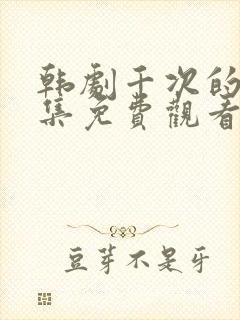 韩劇千次的
集免費觀看
豆芽不是牙